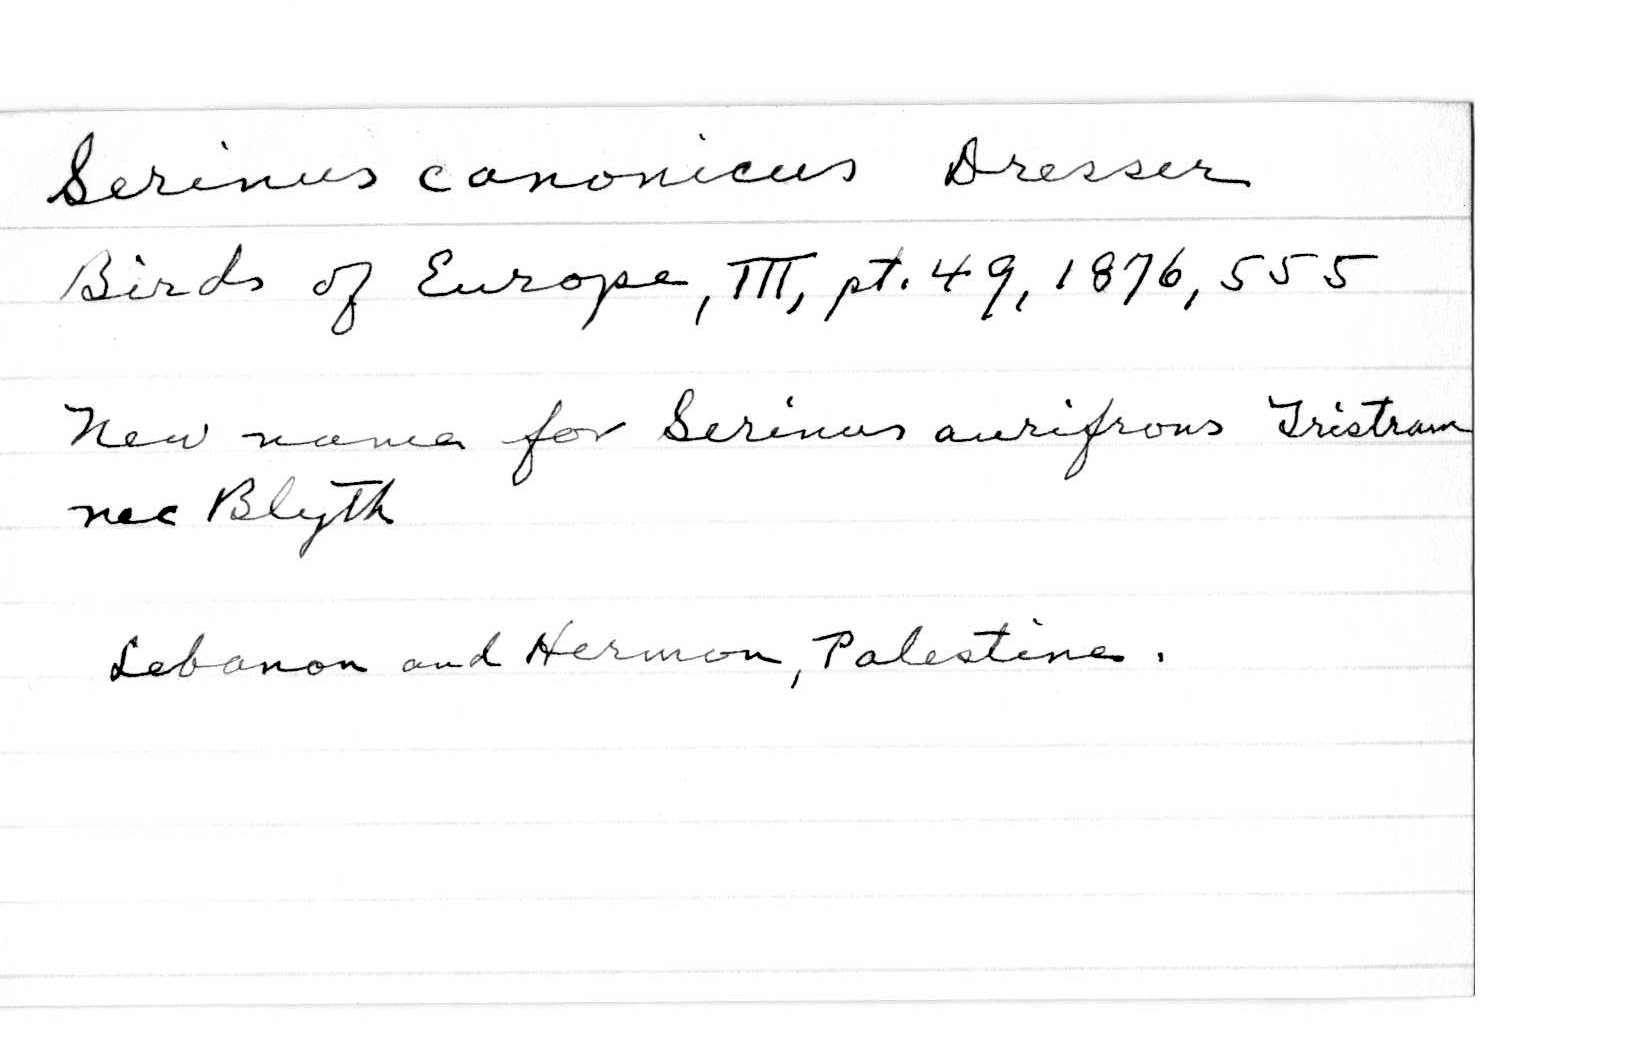 Serinus canonicus Dresser
Birds of Europe, III, pt. 49, 1876, 555
New name for Serinus aurifrons Tristram
nec Blyth
Lebanon and Hermon, Palestine.